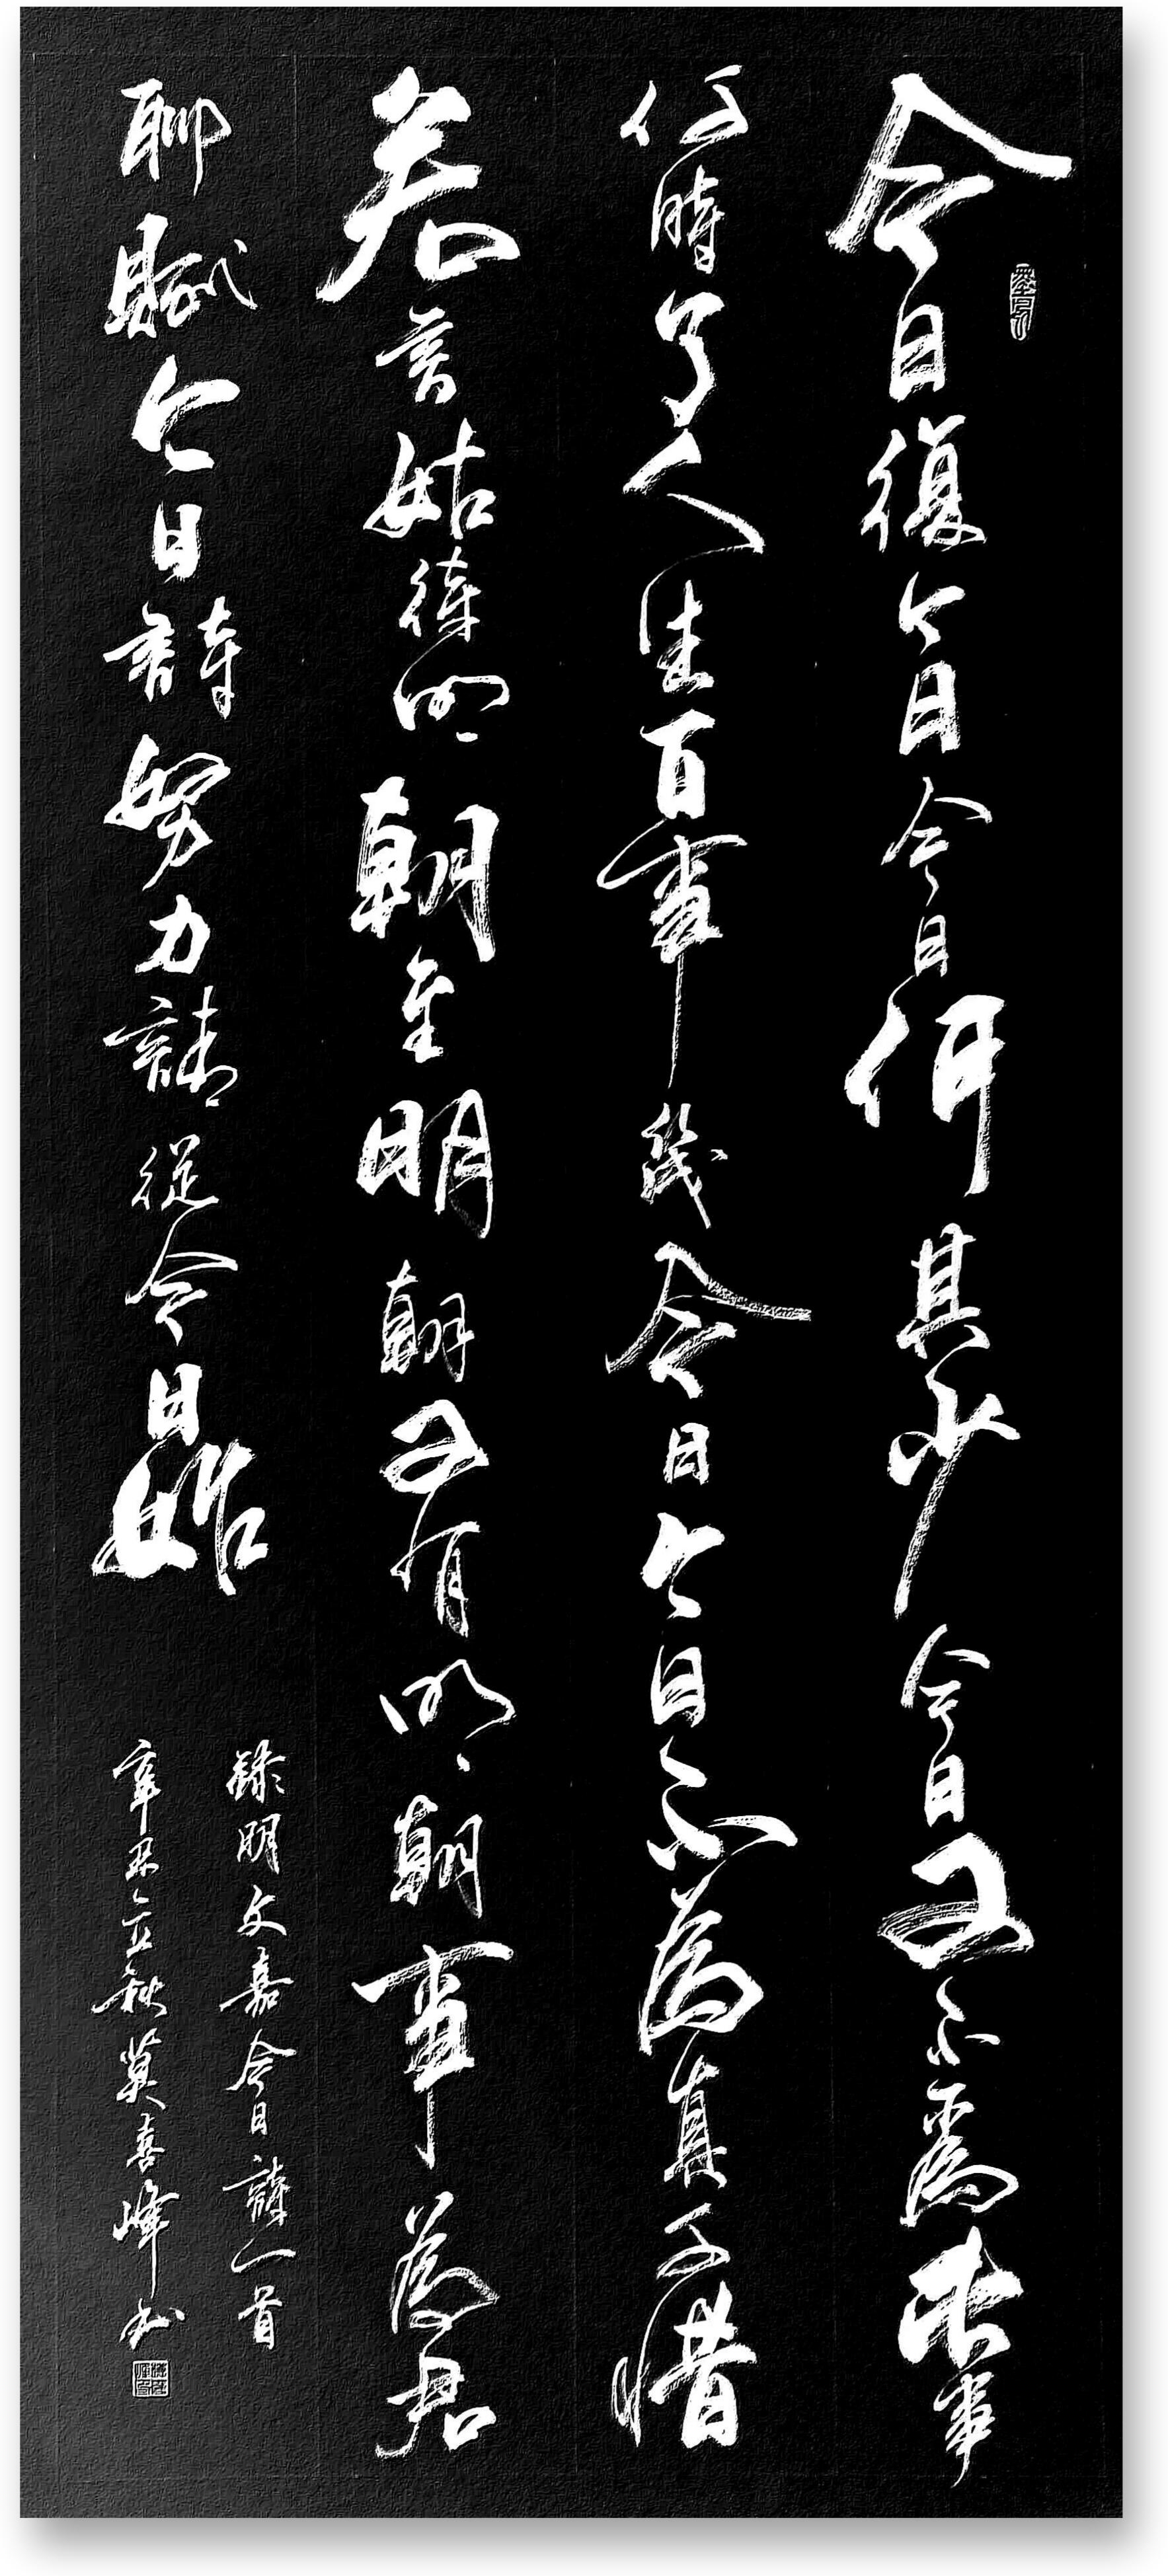 今日復今日今日何其少今日又不為此事
何時了人生百事幾今日今日不為真可惜
若言姑待明朝至明朝又有明朝事為君
聊賦今日詩努力請從今日始
錄明文嘉今日詩一首
辛丑立秋莫喜峰书